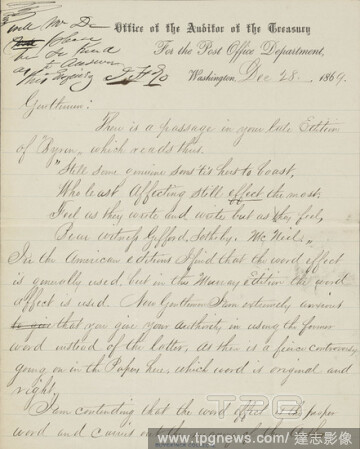 will Mr D
please
be so kind
as to answer
this Inquiry
Office of the Auditor of the Treasury
For the Post Office Department,
Washington, Dec 28. 1869.
Gentlemen:
There is a passage in your late Edition
of Byron, which reads thus.
"Still some genuine sons 'tis hers to boast,
Who least Affecting still effect the most:
Feel as they wrote and write but as they feel,
Bear witness Gifford, Sotheby, McNeil"
In the American editions I find that the word effect
is generally used, but in the Murray Edition the word
affect is used. Now Gentlemen I am extremely anxious
that you give your Authority in using the former
word instead of the latter, as there is a fierce controversy
going on in the Papers here, which word is original and
right.
I am contending that the word effect is the proper
word and carries out the
TPG
www.tpgnews.com / 達志影像